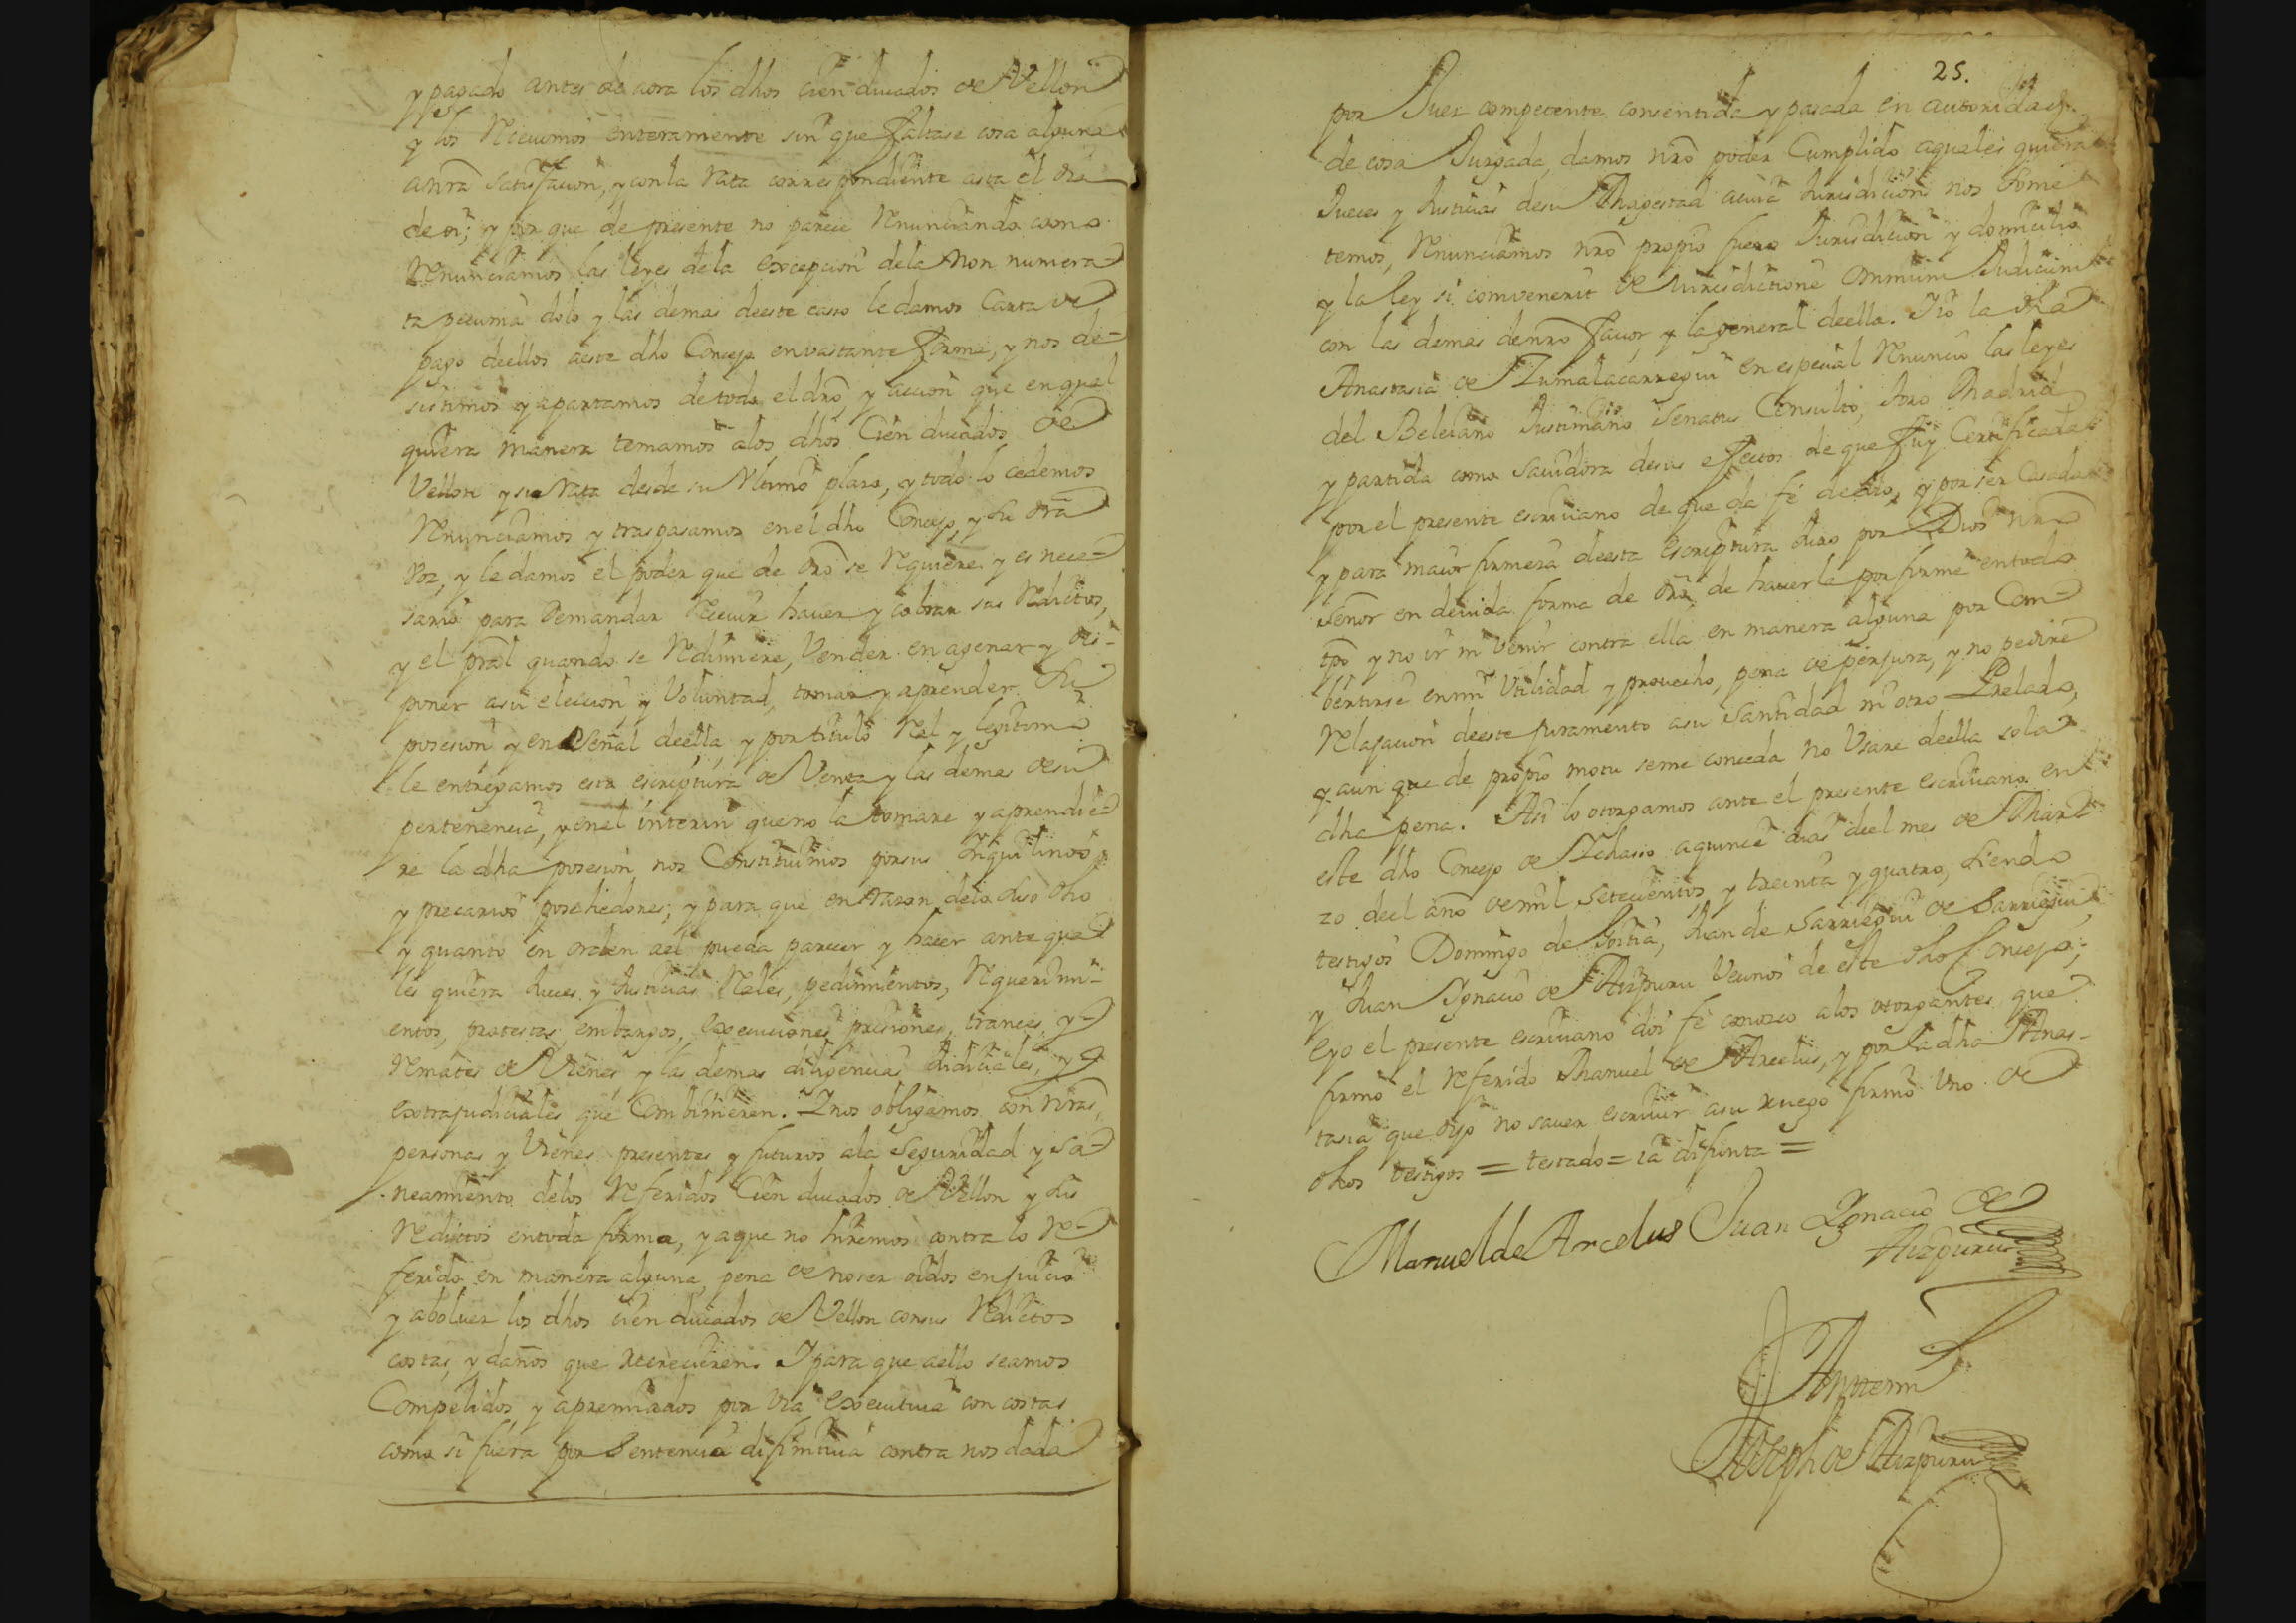 y pagado antes de aora los dhos cien ducados de Vellon
y los Recivimos enteramente sin que faltase cosa alguna
a nra satisfacion, y con la rata correspondiente asta el dia
de oi; y por que de presente no parece Renunciando como
Renunciamos las leyes dela excepcion dela non numera-
ta pecunia dolo y las demas deeste caso le damos Carta de
pago deellos aeste dho Concejo en vastante forma, y nos de-
sistimos y apartamos de todo el dro, y accion que en qual
quiera manera teniamos alos dhos Cien ducados de
Vellon y su rata desde su Vltimo plazo, y todo lo cedemos
Renunciamos y traspasamos en el dho Concejo, y su dra
voz, y le damos el poder que de dro se Requiere y es nece-
sario para Demandar Recivir haver y cobrar sus Reditos,
y el pral quando se Redimiere, Vender enagenar y dis-
poner asu eleccion y Voluntad, tomar y aprender su
posesion y en Señal deella, y por titulo Real y legitimo
le entregamos esta escriptura de Venta y las demas desu
pertenencia, y en el interin que no la tomare y aprendie-
re la dha posesion nos Constituimos por sus Ynquilinos
y precarios posehedores; y para que en razon delo suso dho
y quanto en orden ael pueda parecer y hacer ante qua-
les quiera Jueces y Justicias Reales, pedimientos, Requerimi-
entos, protestas, embargos, execuciones, prisiones, trances, y
Remates de Vienes y las demas diligencias Judiciales, y
extrajudiciales que Combinieren. Y nos obligamos con nras
personas y Vienes presentes y futuros ala Seguridad y sa-
neamiento delos Referidos Cien ducados de Vellon y sus
Reditos en toda forma, y aque no hiremos contra lo Re-
ferido en manera alguna, pena de no ser oidos en juicio
y abolver los dhos cien ducados de Vellon con sus Reditos
costas, y daños que Recrecieren. Y para que aello seamos
Compelidos y apremiados por via executiva con costas
como si fuera por Sentencia difinitiva contra nos dada
25.
por Juez competente consentida y pasada en autoridad
de cosa Juzgada, damos nro poder Cumplido aquales quiera
Jueces y Justicias desu Magestad acuia Jurisdicion nos some
temos, Renunciamos nro propio fuero Jurisdicion y domicilio
y la ley si convenerit de Jurisdictione omnium Judicum
con las demas denro favor, y la general deella. Y Yo la dha
Anastasia de Zumalacarregui en especial Renuncio las leyes
del Beleiano Justiniano Senatus Consulto, toro Madrid
y partida como savidora desus efectos de que fuy Certificada
por el presente escrivano de que da fé deello, y por ser Casada
y para maior firmeza deesta escriptura Juro por Dios nro
Señor en devida forma de dro, de haverle por firme en todo
tpo y no ir ni venir contra ella en manera alguna por Com-
bertirse en mi Vtilidad y provecho, pena de perjura, y no pedire
Relajacion deeste juramento asu Santidad ni otro Prelado,
y aun que de propio motu se me conceda no Vsare deella sola
dha pena. Asi lo otorgamos ante el presente escrivano en
este dho Concejo de Ychasso aquince dias del mes de Mar-
zo deel año de mil setecientos y treinta y quatro, siendo
testigos Domingo de Goitia, Juan de Sarriegui de Sarriegui
y Juan Ygnacio de Aizpuru Vecinos de este dho Concejo;
e yo el presente escrivano doi fé conozco alos otorgantes que
firmó el Referido Manuel de Arcelus, y por la dha Anas-
tasia que dijo no saver escrivir asu ruego firmó Vno de
dhos testigos = testado = ia difunta =
Manuel de Arcelus Juan Ygnacio de
Aizpuru
Ante mi
Joseph de Aizpuru